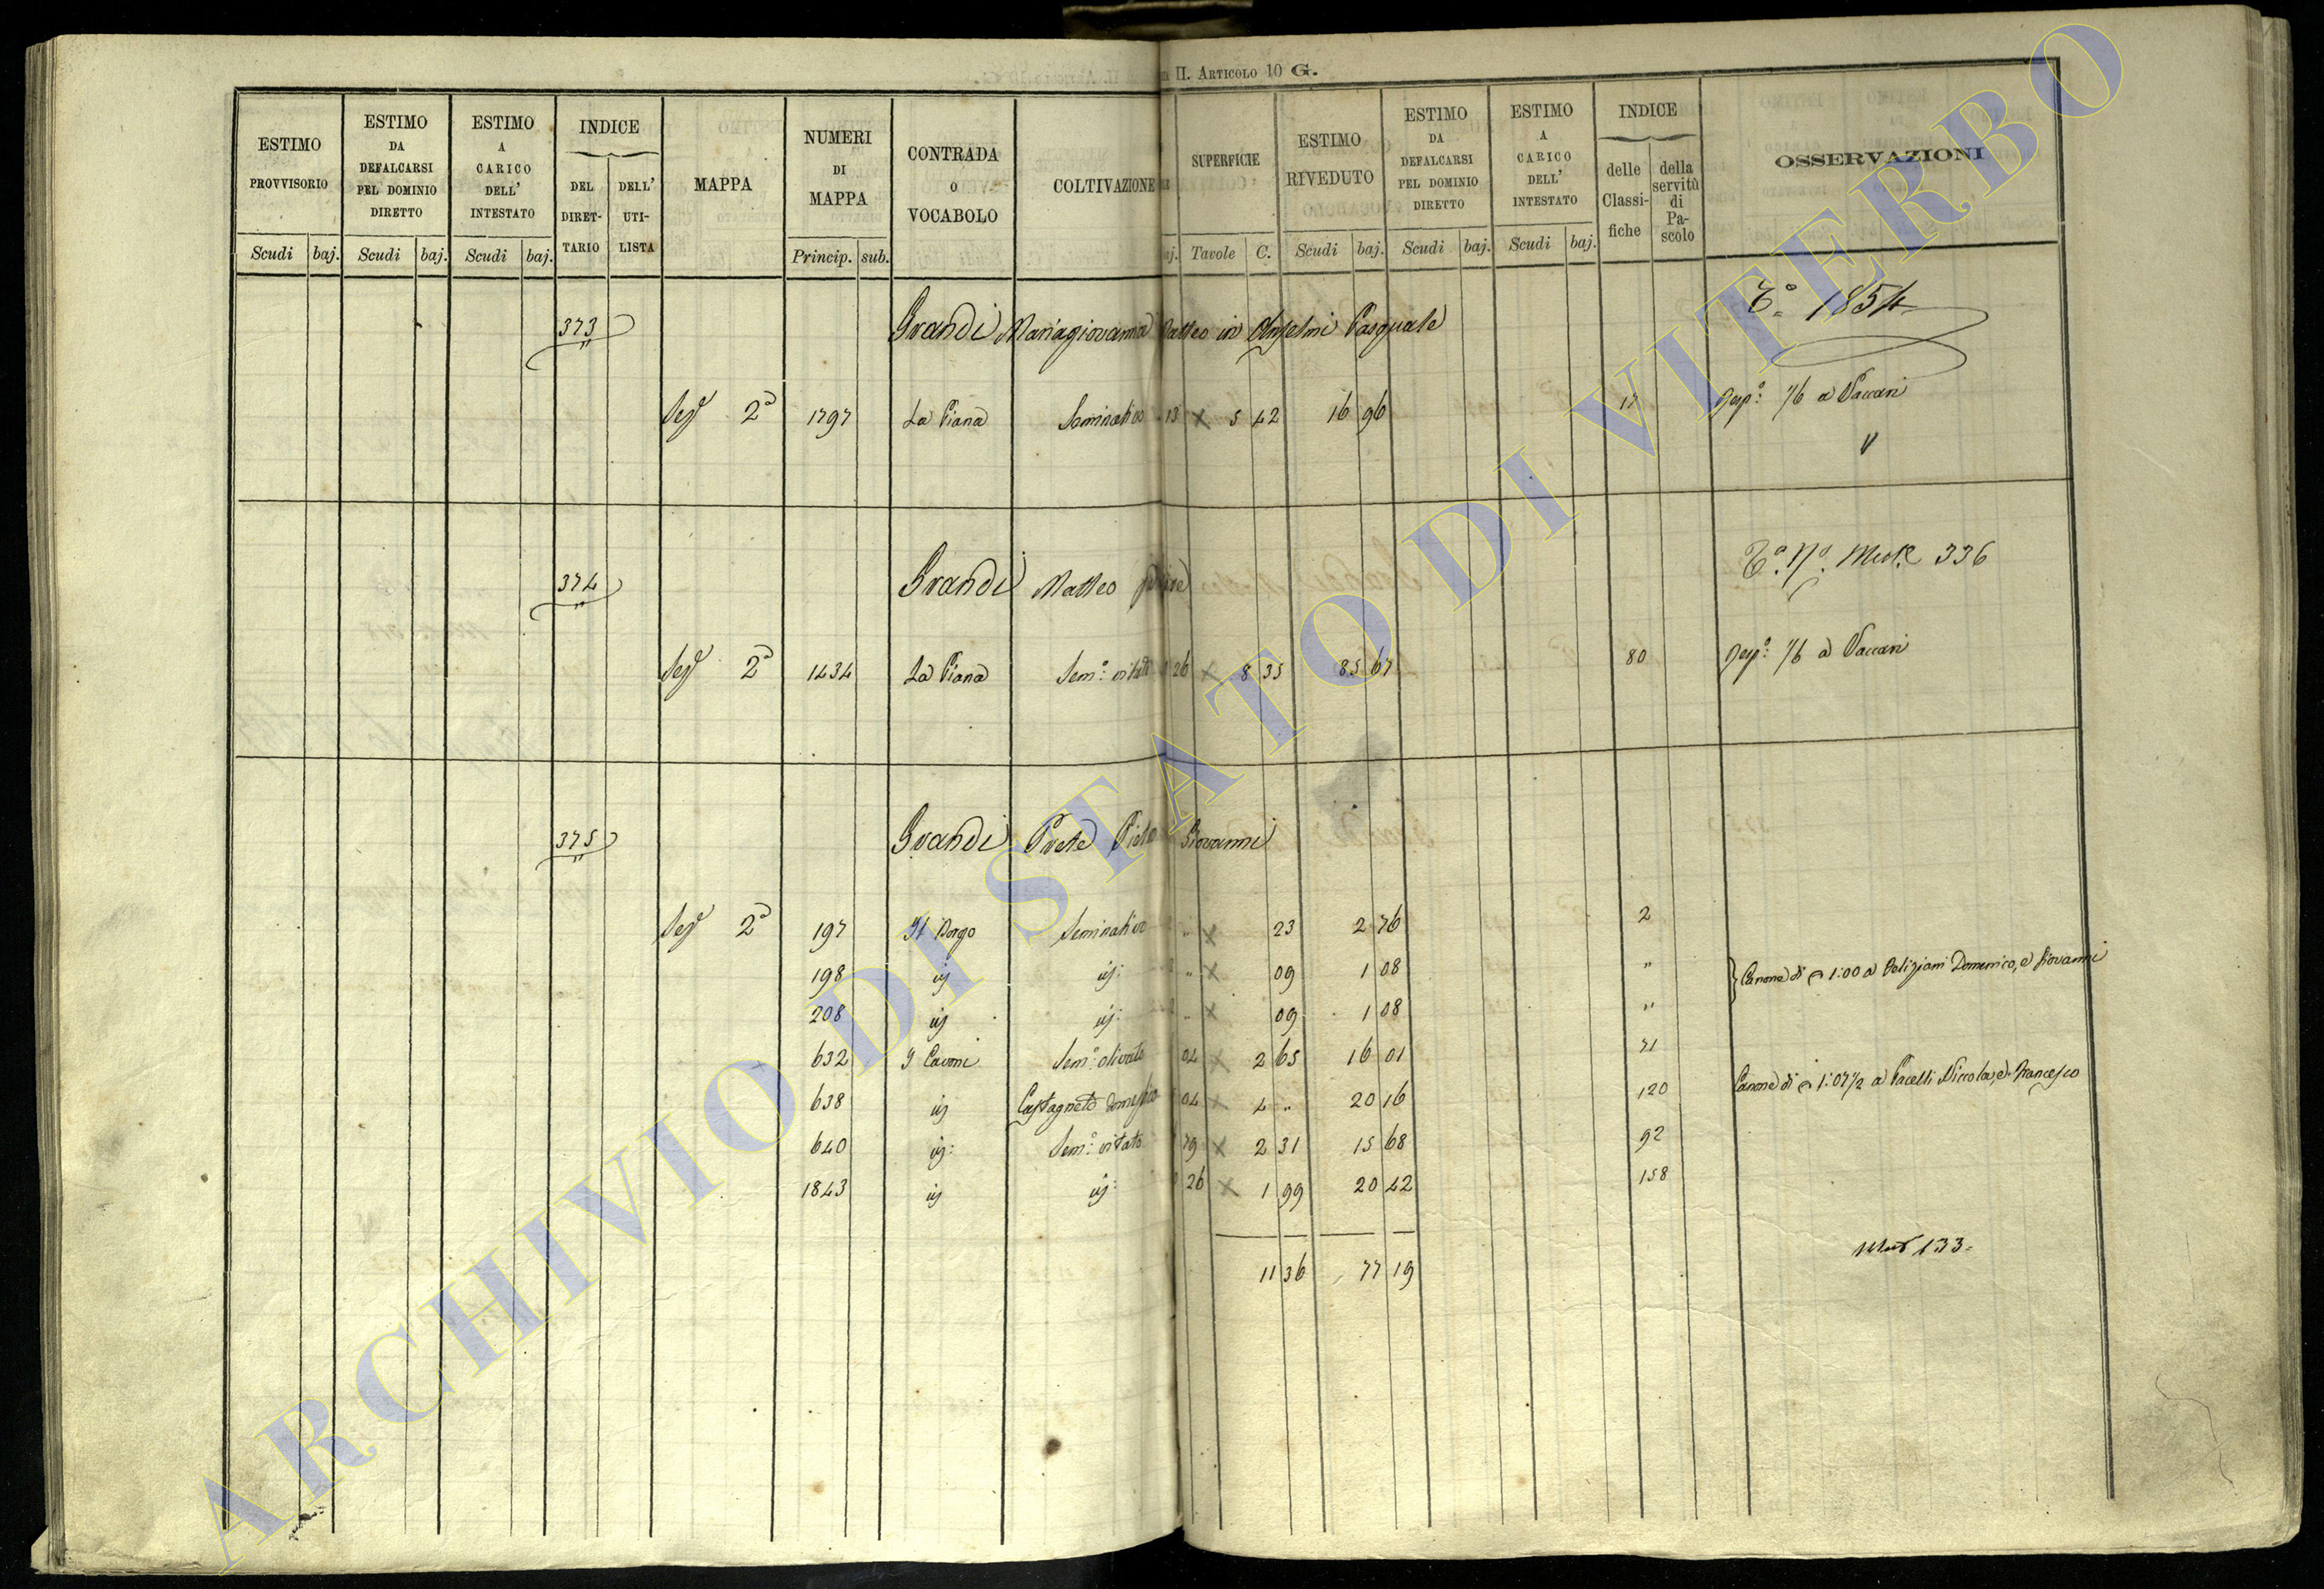 II. Articolo 10 G.
ESTIMO PROVVISORIO
Scudi baj.
ESTIMO DA DEFALCARSI PEL DOMINIO DIRETTO
Scudi baj.
ESTIMO A CARICO DELL' INTESTATO
Scudi baj.
INDICE
DEL DIRET-TARIO
DELL' UTI-LISTA
MAPPA
NUMERI DI MAPPA
Princip. sub.
CONTRADA O VOCABOLO
COLTIVAZIONE
SUPERFICIE
aj. Tavole C.
ESTIMO RIVEDUTO
Scudi baj.
ESTIMO DA DEFALCARSI PEL DOMINIO DIRETTO
Scudi baj.
ESTIMO A CARICO DELL' INTESTATO
Scudi baj.
INDICE
delle Classi-fiche
della servitù di Pa-scolo
OSSERVAZIONI
373 Grandi Mariagiovanna Matteo in Anselmi Pasquale 1854
Sez.e 2a 1797 La Piana Seminativo 13 x 5 42 16 96 17 a Vaccari
374 Grandi Matteo 336
Sez.e 2a 1434 La Piana Sem.o vitato 26 x 8 35 85 67 80 a Vaccari
375 Grandi Prete Pietro Giovanni
Sez.e 2a 197 Il Borgo Seminativo " x 23 2 76 2
198 id id: " x 09 1 08 " Canone di 1:00 a Domenico, e Giovanni
208 id id: " x 09 1 08 "
632 I Cavoni Sem.o olivato 04 x 2 65 16 01 71
638 id Castagneto domestico 04 x 4 " 20 16 120 Canone di 1:07 1/2 a Pacelli Niccola, e Francesco
640 id: Sem.o vitato 79 x 2 31 15 68 92
1843 id id: 26 x 1 99 20 42 158
11 36 77 19
133
ARCHIVIO DI STATO DI VITERBO